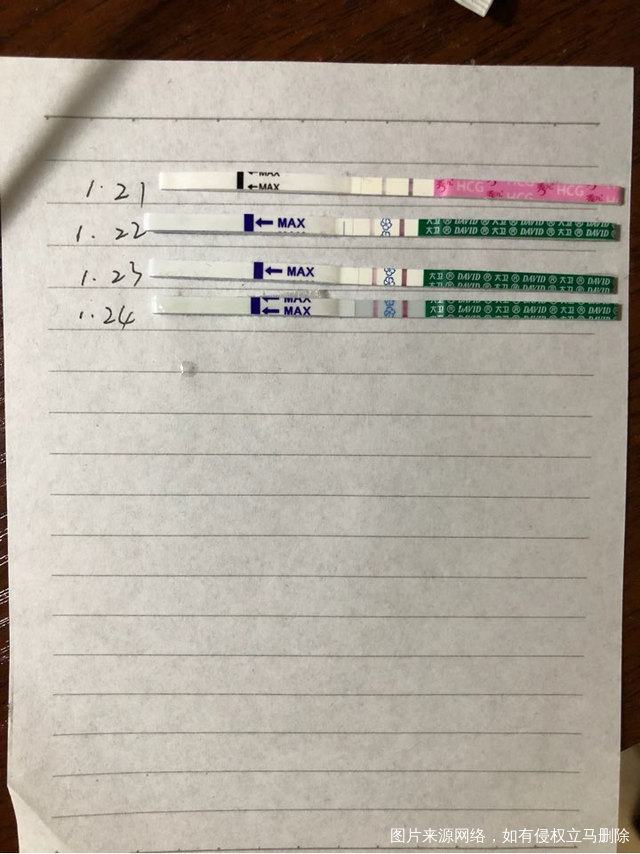 1.21 MAX MAX HCG HCG H
1.22 MAX 大卫 ® DAVID ® 大卫 ® DAVID ® 大卫 ® DAVID
大卫 ® DAVID ® 大卫 ® DAVID ® 大卫 ® DAVID
1.23 MAX 大卫 ® DAVID ® 大卫 ® DAVID ® 大卫 ® DAVID
1.24 MAX MAX 大卫 ® DAVID ® 大卫 ® DAVID ® 大卫 ® DAVID
图片来源网络，如有侵权立马删除